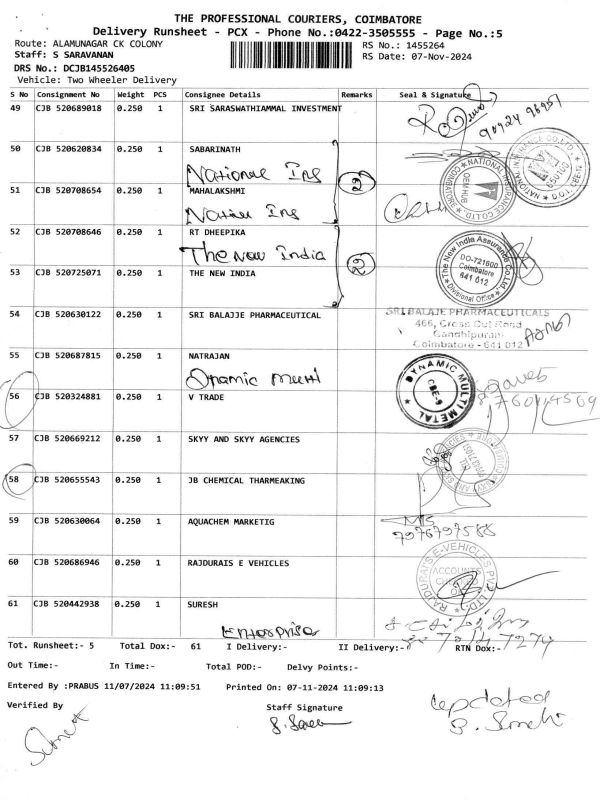 THE PROFESSIONAL COURIERS, COIMBATORE
Delivery Runsheet - PCX - Phone No.:0422-3505555 - Page No.:5
Route: ALAMUNAGAR CK COLONY RS No.: 1455264
Staff: S SARAVANAN RS Date: 07-Nov-2024
DRS No.: DCJB145526405
Vehicle: Two Wheeler Delivery
S No Consignment No Weight PCS Consignee Details Remarks Seal & Signature
49 CJB 520689018 0.250 1 SRI SARASWATHIAMMAL INVESTMENT
50 CJB 520620834 0.250 1 SABARINATH
National Ins
2
51 CJB 520708654 0.250 1 MAHALAKSHMI
Nation Ins
52 CJB 520708646 0.250 1 RT DHEEPIKA
The New India
2
The New India Assurance Co.Ltd
DO-721600
Coimbatore
641 012
Divisional Office
53 CJB 520725071 0.250 1 THE NEW INDIA
54 CJB 520630122 0.250 1 SRI BALAJJE PHARMACEUTICAL
SRI BALAJE PHARMACEUTICALS
466, Cross Cut Road
Gandhipuram
Coimbatore - 641 012
55 CJB 520687815 0.250 1 NATRAJAN
DYNAMIC MULTI METAL
CBE-9
56 CJB 520324881 0.250 1 V TRADE
57 CJB 520669212 0.250 1 SKYY AND SKYY AGENCIES
58 CJB 520655543 0.250 1 JB CHEMICAL THARMEAKING
59 CJB 520630064 0.250 1 AQUACHEM MARKETIG
7976797588
60 CJB 520686946 0.250 1 RAJDURAIS E VEHICLES
RAJDURAIS E-VEHICLES PVT. LTD.
ACCOUNTS
61 CJB 520442938 0.250 1 SURESH
Enterprise
Tot. Runsheet:- 5 Total Dox:- 61 I Delivery:- II Delivery:- RTN Dox:-
Out Time:- In Time:- Total POD:- Delvy Points:-
Entered By :PRABUS 11/07/2024 11:09:51 Printed On: 07-11-2024 11:09:13
Verified By Staff Signature
updated